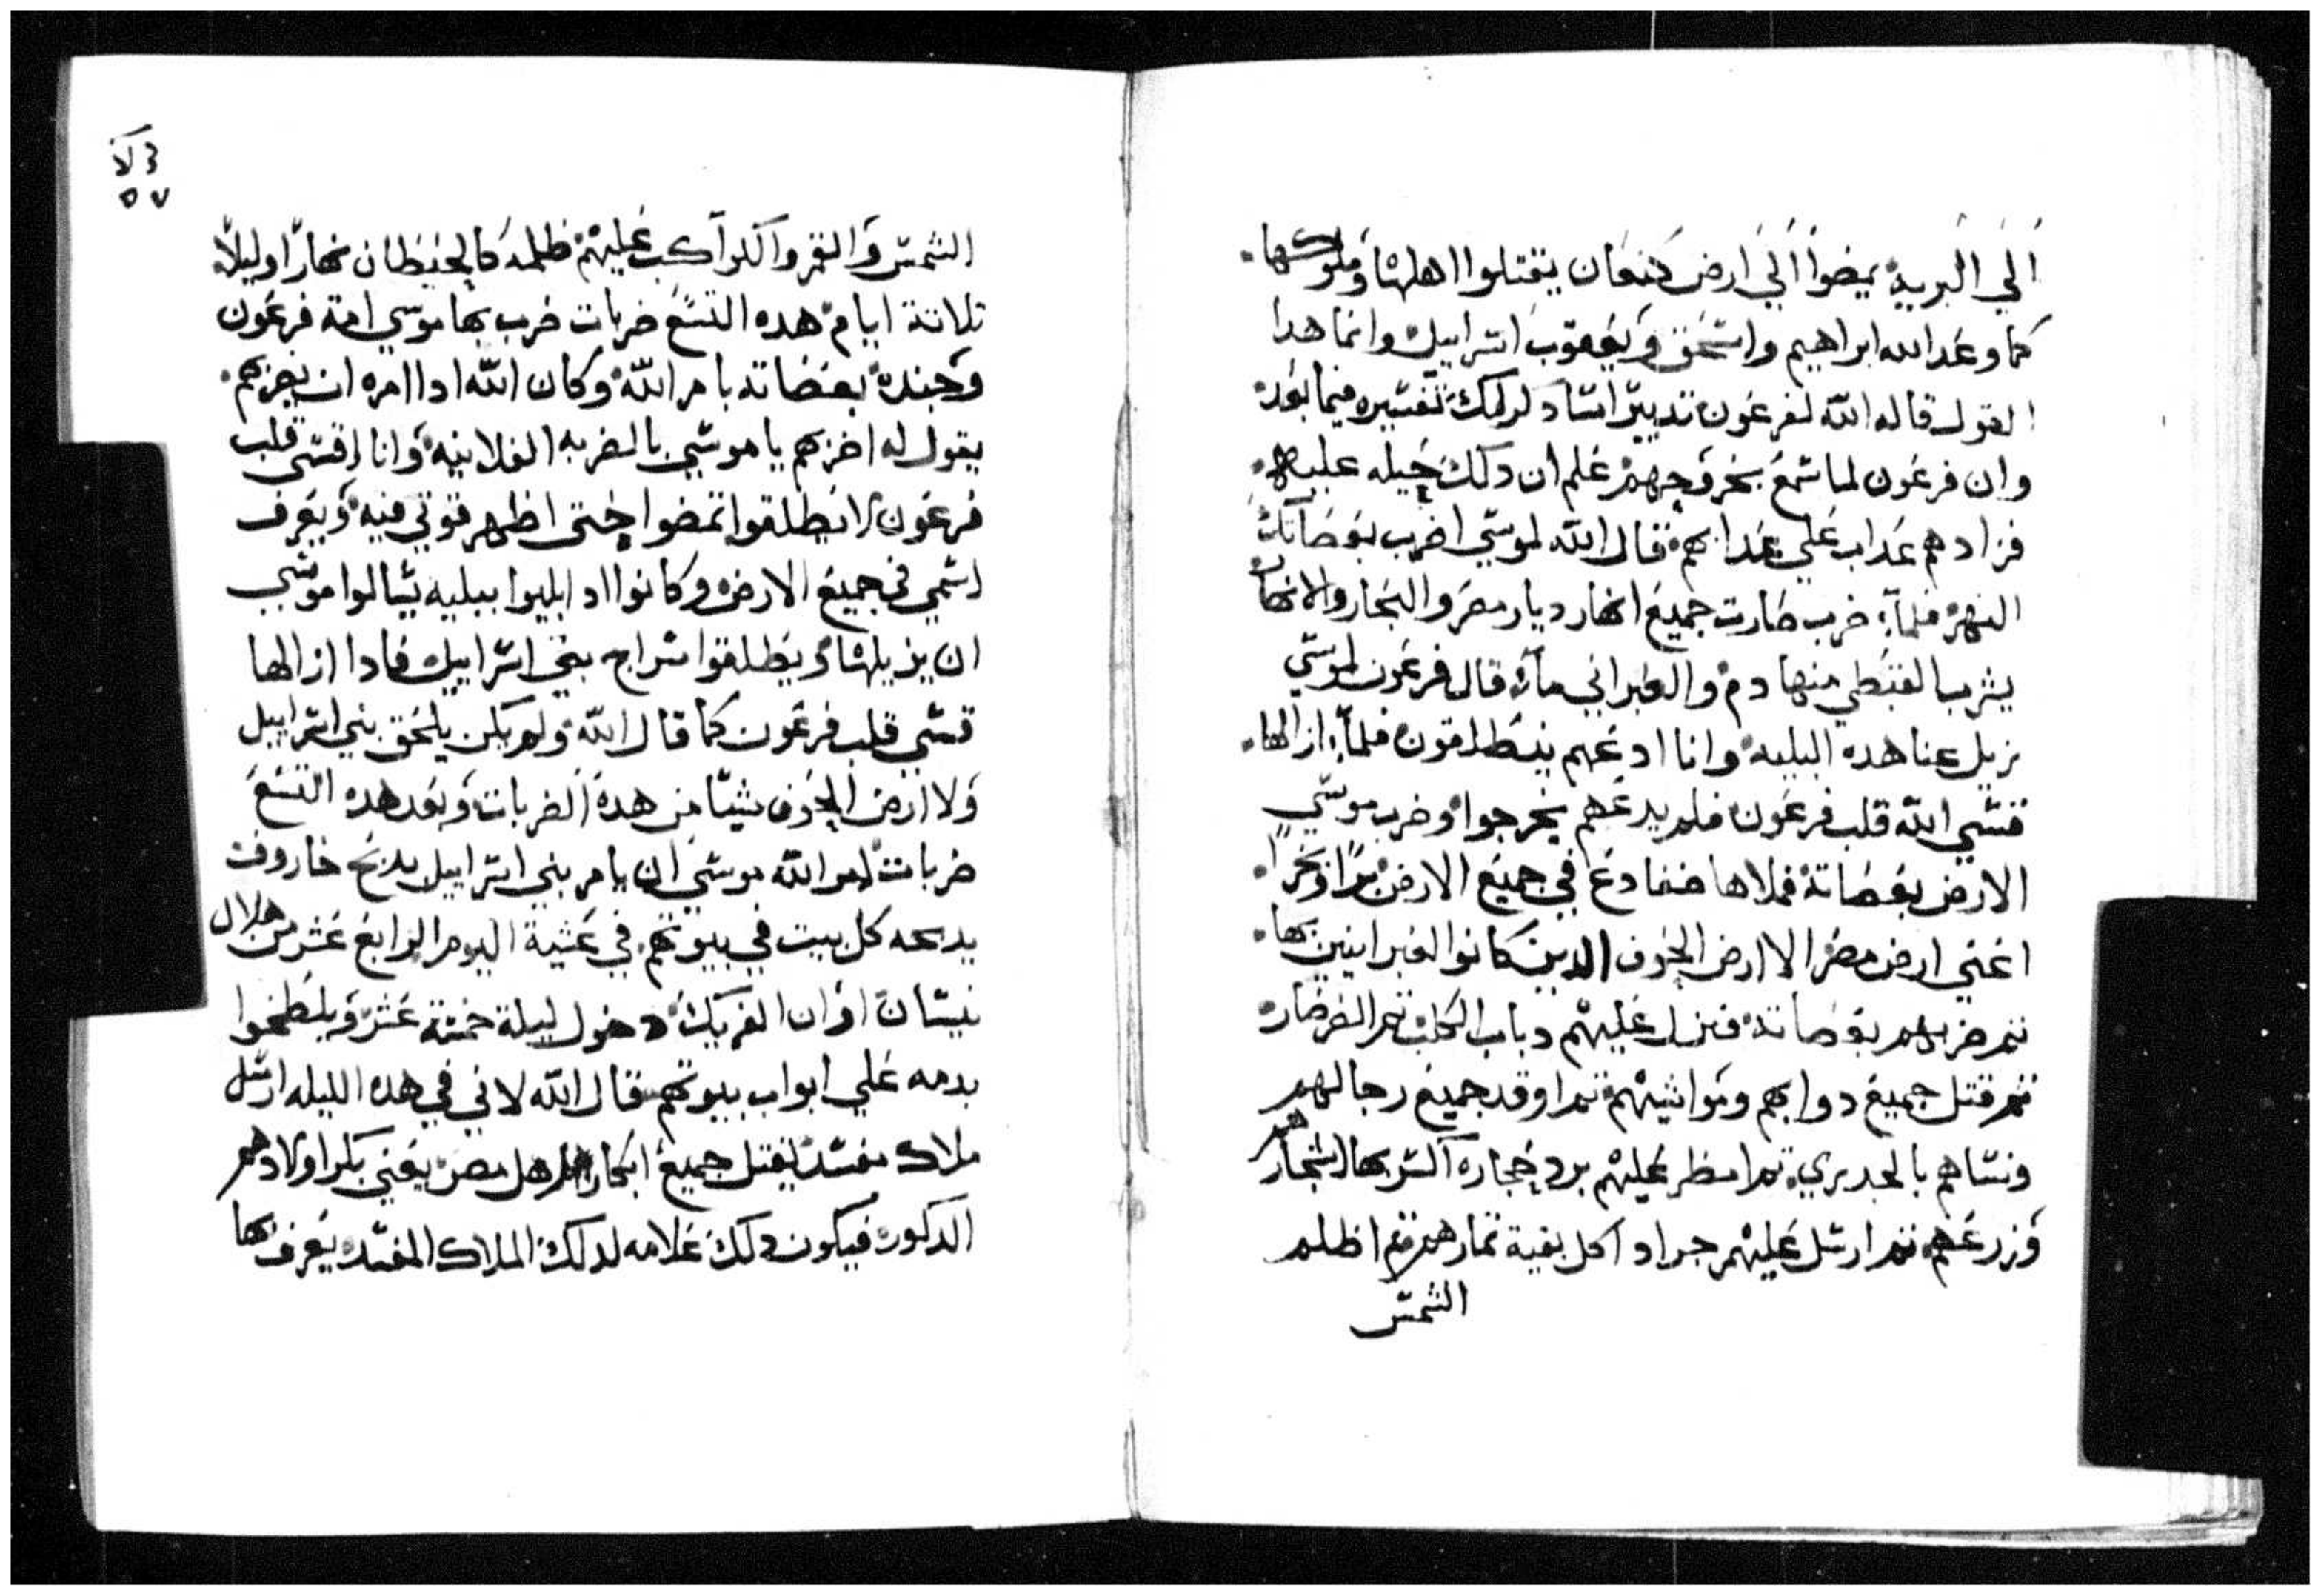 الي البرية يمضوا الي ارض كنعان يقتلوا اهلها وملوكها.
كما وعد الله ابراهيم واسحق ويعقوب اسراييل وانما هدا
القول قاله الله لفرعون تدبيرا لدلك تفسيره فيما بعد
وان فرعون لما سمع بخروجهم علم ان دلك حيله عليه.
فزادهم عداب علي عدابهم قال الله لموسي اضرب بعصاتك
النهر فلما ضرب صارت جميع انهار ديار مصر والبحار والانهار
يشرب القبطي منها دم والعبراني ماء قال فرعون لموسي
نزيل عنا هده البليه وانا ادعهم ينطلقون فلما ازالها.
قسي الله قلب فرعون فلم يدعهم يخرجوا وضرب موسي
الارض بعصاته فملاها ضفادع في جميع الارض برا وبحرا.
اعني ارض مصر الا ارض الجوف الدين كانوا العبرانيين بها.
تم ضربهم بعصاته فنزل عليهم دباب الكلب تم الضرضار
تم قتل جميع دوابهم ومواشيهم تم اوقد جميع رجالهم
ونساهم بالجدري تم امطر عليهم برد حجاره اكسر بها اشجارهم
وزرعهم تم ارسل عليهم جراد اكل بقية تمارهم تم اظلم
الشمس
٥٧
الشمس والقمر والكواكب عليهم ظلمه كالحيطان نهارا وليلا
تلاتة ايام هده التسع ضربات ضرب بها موسي امة فرعون
وجنده بعصاته بامر الله وكان الله ادا امره ان يضربهم.
يقول له اضربهم يا موسي بالضربه الفلانيه وانا اقسي قلب
فرعون لا يطلقوا تمضوا حتى اظهر قوتي فيه ويعرف
اسمي في جميع الارض وكانوا ادا بليوا ببليه يسالوا موسي
ان يزيلها ويطلقوا سراح بني اسراييل فادا ازالها
قسي قلب فرعون كما قال الله ولم يكن يلحق بني اسراييل
ولا ارض الجوف شيا من هده الضربات وبعد هده التسع
ضربات امر الله موسي ان يامر بني اسراييل بدبح خاروف
يدبحه كل بيت في بيوتهم في عشية اليوم الرابع عشر من هلال
نيسان اوان الفريك دخول ليلة خمسة عشر ويلطخوا
بدمه علي ابواب بيوتهم قال الله لاني في هده الليله ارسل
ملاك مفسد يقتل جميع ابكار اهل مصر يعني بكر اولادهم
الدكور فيكون دلك علامه لدلك الملاك المفسد يعرف بها